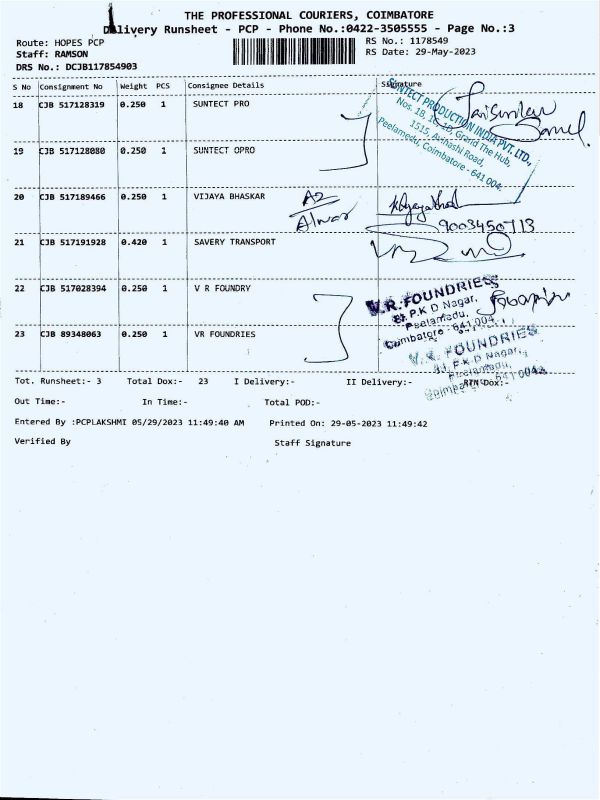 THE PROFESSIONAL COURIERS, COIMBATORE
Delivery Runsheet - PCP - Phone No.:0422-3505555 - Page No.:3
Route: HOPES PCP
RS No.: 1178549
Staff: RAMSON
RS Date: 29-May-2023
DRS No.: DCJB117854903
S No Consignment No Weight PCS Consignee Details Signature
18 CJB 517128319 0.250 1 SUNTECT PRO
SUNTECT PRODUCTION INDIA PVT. LTD.,
Nos. 18, 1C, 1D, Grand The Hub,
1515, Avinashi Road,
Peelamedu, Coimbatore - 641 004.
19 CJB 517128080 0.250 1 SUNTECT OPRO
20 CJB 517189466 0.250 1 VIJAYA BHASKAR
A2
Alwar
9003450713
21 CJB 517191928 0.420 1 SAVERY TRANSPORT
22 CJB 517028394 0.250 1 V R FOUNDRY
V.R. FOUNDRIES
P.K D Nagar,
Peelamedu,
Coimbatore - 641 004.
23 CJB 89348063 0.250 1 VR FOUNDRIES
V.R. FOUNDRIES
P.K D Nagar,
Peelamedu,
Coimbatore - 641 004.
Tot. Runsheet:- 3 Total Dox:- 23 I Delivery:- II Delivery:- RTN Dox:-
Out Time:- In Time:- Total POD:-
Entered By :PCPLAKSHMI 05/29/2023 11:49:40 AM Printed On: 29-05-2023 11:49:42
Verified By Staff Signature